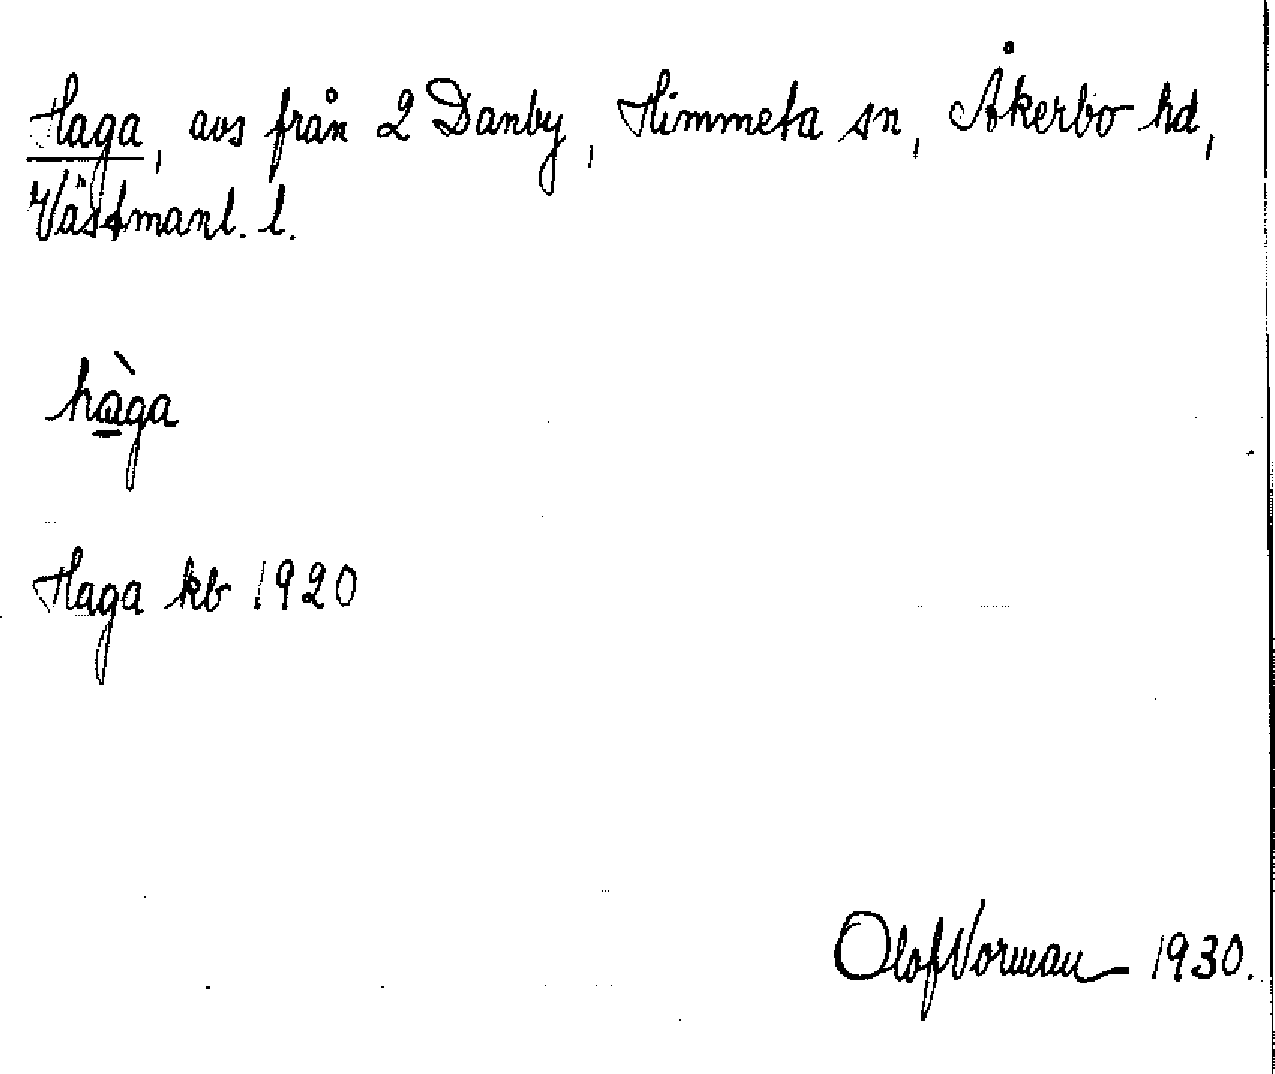 Haga, avs från 2 Danby, Himmeta sn, Åkerbo hd,
Västmanl. l.
hàga
Haga kb 1920
Olof Norman 1930.